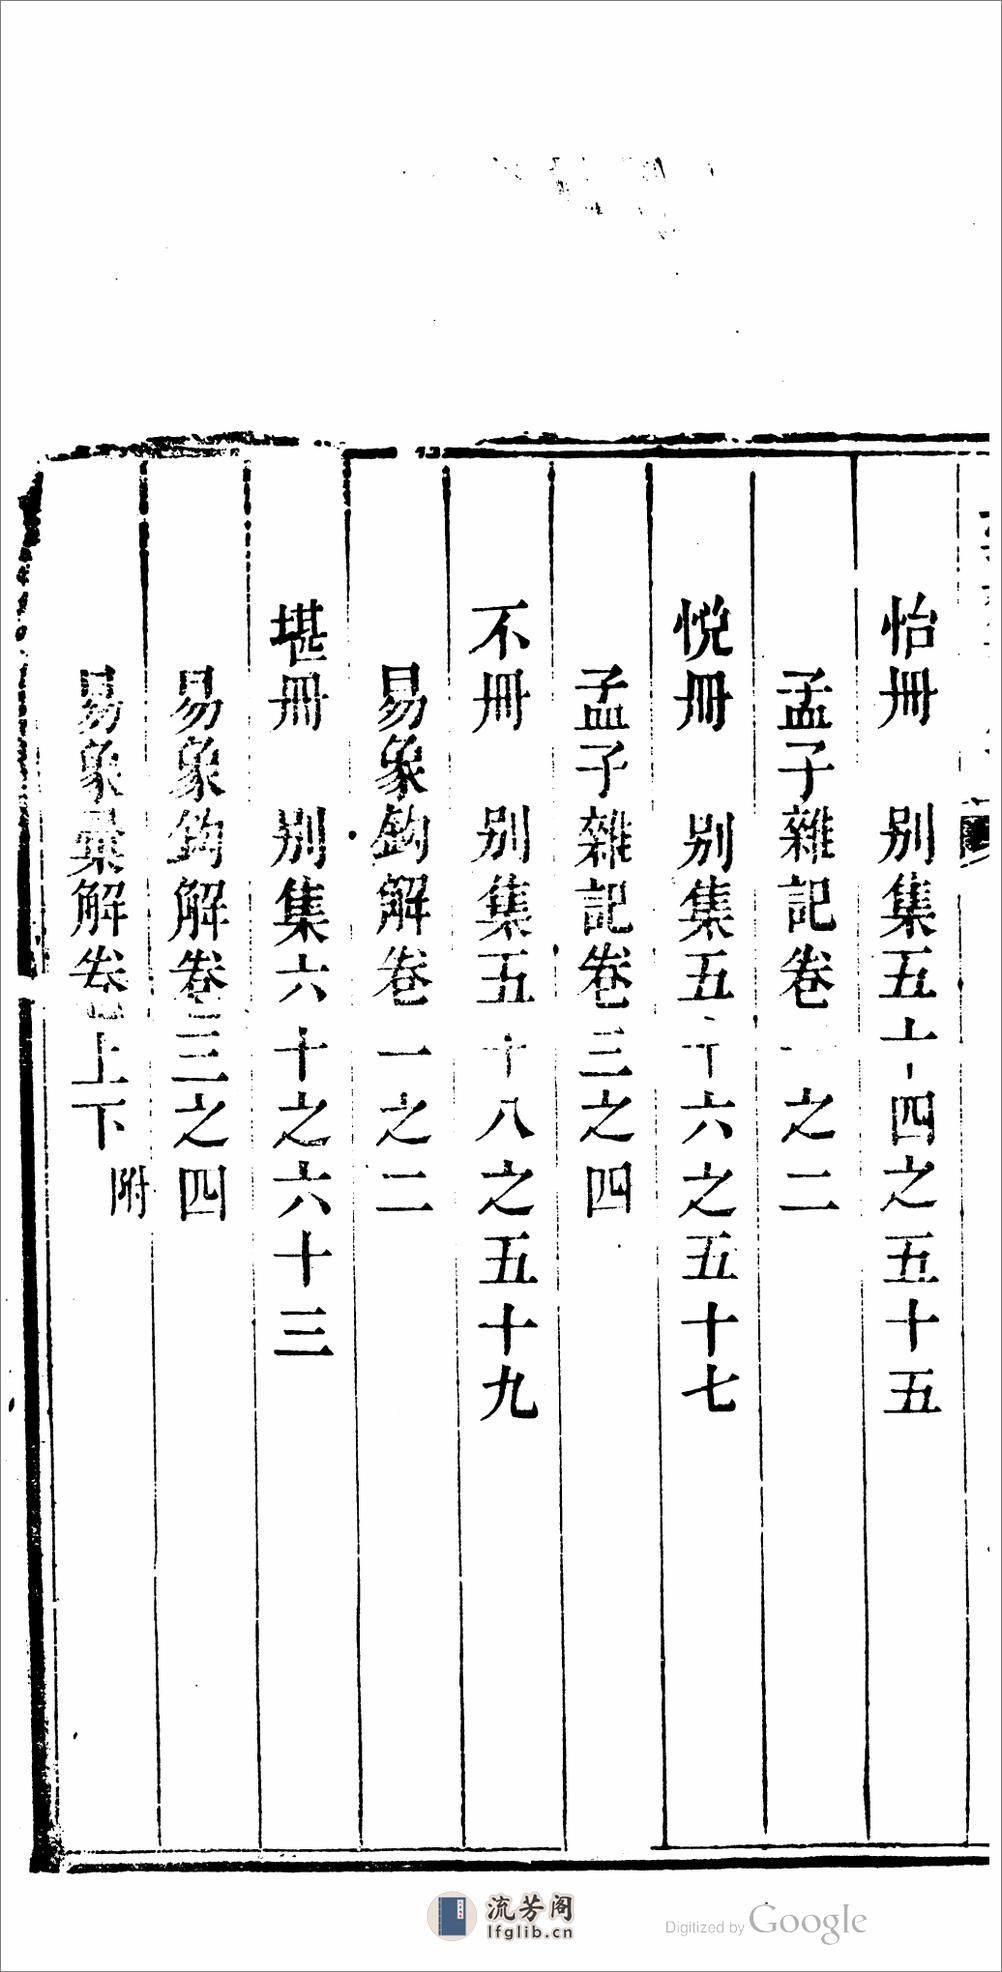 怡冊　別集五十四之五十五
孟子雜記卷一之二
悅冊　別集五十六之五十七
孟子雜記卷三之四
不冊　別集五十八之五十九
易象鉤解卷一之二
堪冊　別集六十之六十三
易象鉤解卷三之四
易象彙解卷上下附
流芳阁
lfglib.cn
Digitized by Google